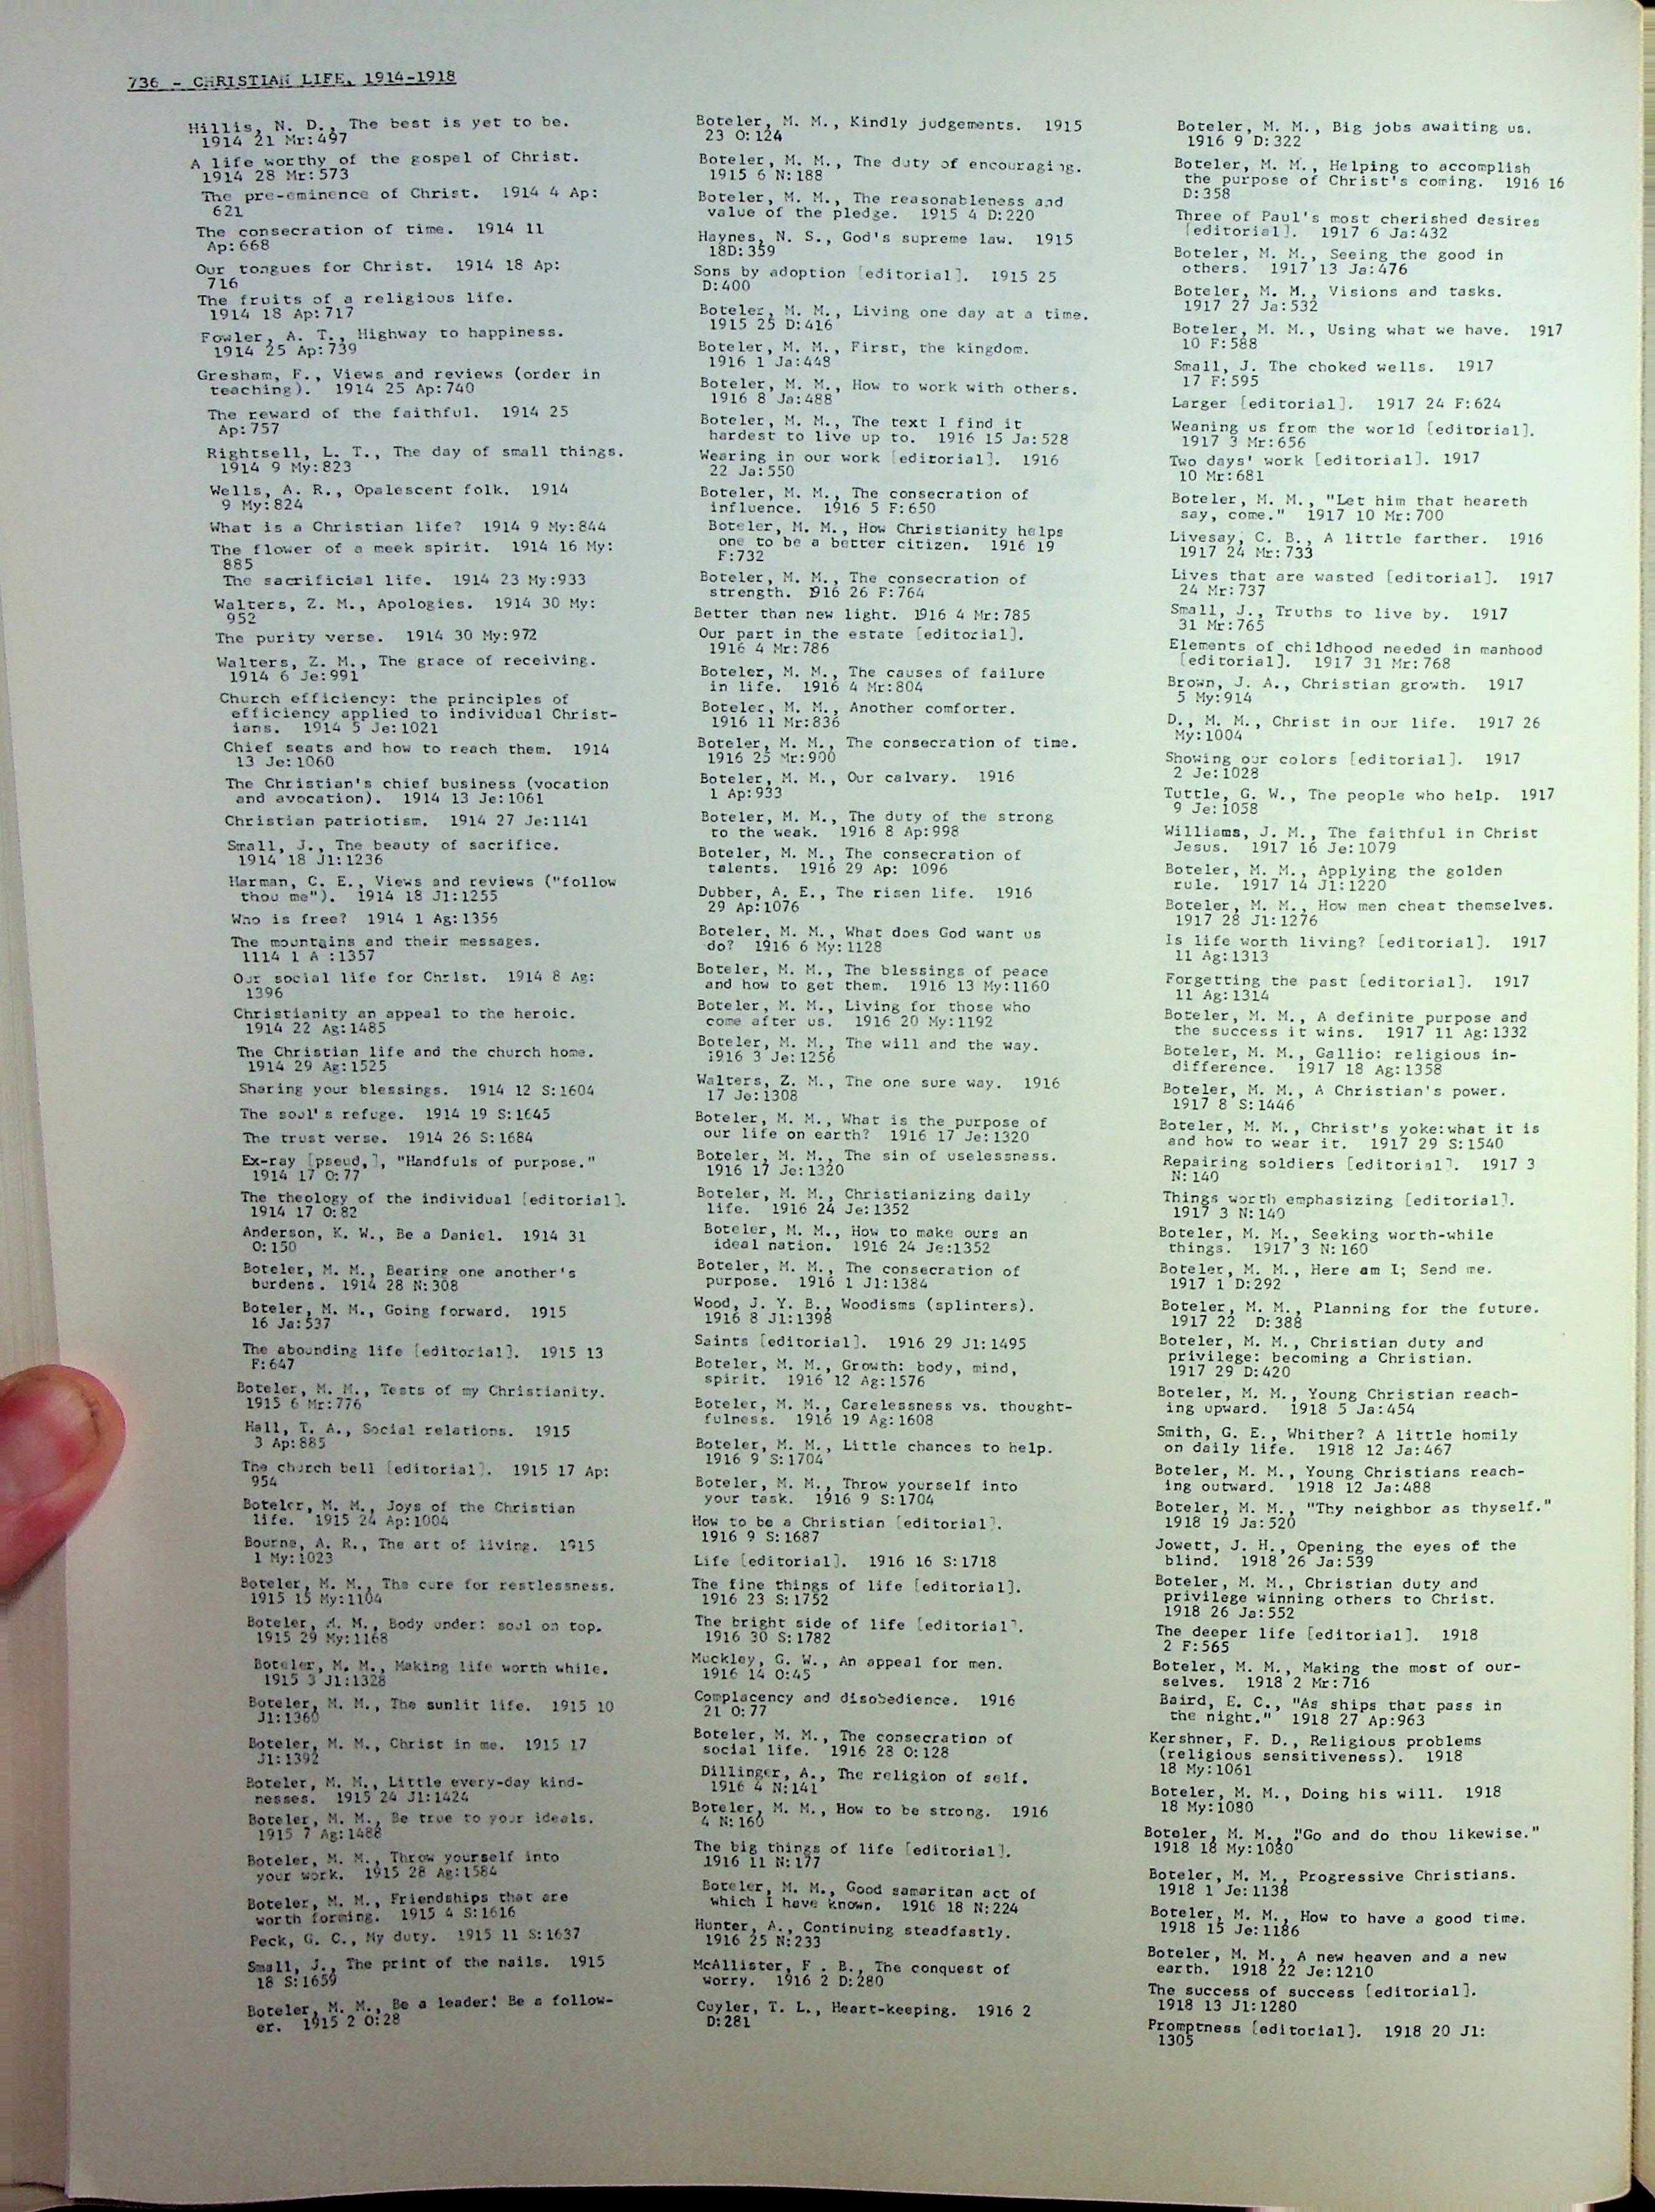 736 - CHRISTIAN LIFE, 1914-1918
Hillis, N. D., The best is yet to be.
1914 21 Mr:497
A life worthy of the gospel of Christ.
1914 28 Mr:573
The pre-eminence of Christ. 1914 4 Ap:
621
The consecration of time. 1914 11
Ap:668
Our tongues for Christ. 1914 18 Ap:
716
The fruits of a religious life.
1914 18 Ap:717
Fowler, A. T., Highway to happiness.
1914 25 Ap:739
Gresham, F., Views and reviews (order in
teaching). 1914 25 Ap:740
The reward of the faithful. 1914 25
Ap:757
Rightsell, L. T., The day of small things.
1914 9 My:823
Wells, A. R., Opalescent folk. 1914
9 My:824
What is a Christian life? 1914 9 My:844
The flower of a meek spirit. 1914 16 My:
885
The sacrificial life. 1914 23 My:933
Walters, Z. M., Apologies. 1914 30 My:
952
The purity verse. 1914 30 My:972
Walters, Z. M., The grace of receiving.
1914 6 Je:991
Church efficiency: the principles of
efficiency applied to individual Christ-
ians. 1914 5 Je:1021
Chief seats and how to reach them. 1914
13 Je:1060
The Christian's chief business (vocation
and avocation). 1914 13 Je:1061
Christian patriotism. 1914 27 Je:1141
Small, J., The beauty of sacrifice.
1914 18 Jl:1236
Harman, C. E., Views and reviews ("follow
thou me"). 1914 18 Jl:1255
Who is free? 1914 1 Ag:1356
The mountains and their messages.
1114 1 A :1357
Our social life for Christ. 1914 8 Ag:
1396
Christianity an appeal to the heroic.
1914 22 Ag:1485
The Christian life and the church home.
1914 29 Ag:1525
Sharing your blessings. 1914 12 S:1604
The soul's refuge. 1914 19 S:1645
The trust verse. 1914 26 S:1684
Ex-ray [pseud,], "Handfuls of purpose."
1914 17 O:77
The theology of the individual [editorial].
1914 17 O:82
Anderson, K. W., Be a Daniel. 1914 31
O:150
Boteler, M. M., Bearing one another's
burdens. 1914 28 N:308
Boteler, M. M., Going forward. 1915
16 Ja:537
The abounding life [editorial]. 1915 13
F:647
Boteler, M. M., Tests of my Christianity.
1915 6 Mr:776
Hall, T. A., Social relations. 1915
3 Ap:885
The church bell [editorial]. 1915 17 Ap:
954
Boteler, M. M., Joys of the Christian
life. 1915 24 Ap:1004
Bourne, A. R., The art of living. 1915
1 My:1023
Boteler, M. M., The cure for restlessness.
1915 15 My:1104
Boteler, M. M., Body under: soul on top.
1915 29 My:1168
Boteler, M. M., Making life worth while.
1915 3 Jl:1328
Boteler, M. M., The sunlit life. 1915 10
Jl:1360
Boteler, M. M., Christ in me. 1915 17
Jl:1392
Boteler, M. M., Little every-day kind-
nesses. 1915 24 Jl:1424
Boteler, M. M., Be true to your ideals.
1915 7 Ag:1488
Boteler, M. M., Throw yourself into
your work. 1915 28 Ag:1584
Boteler, M. M., Friendships that are
worth forming. 1915 4 S:1616
Peck, G. C., My duty. 1915 11 S:1637
Small, J., The print of the nails. 1915
18 S:1659
Boteler, M. M., Be a leader! Be a follow-
er. 1915 2 O:28
Boteler, M. M., Kindly judgements. 1915
23 O:124
Boteler, M. M., The duty of encouraging.
1915 6 N:188
Boteler, M. M., The reasonableness and
value of the pledge. 1915 4 D:220
Haynes, N. S., God's supreme law. 1915
18D:359
Sons by adoption [editorial]. 1915 25
D:400
Boteler, M. M., Living one day at a time.
1915 25 D:416
Boteler, M. M., First, the kingdom.
1916 1 Ja:448
Boteler, M. M., How to work with others.
1916 8 Ja:488
Boteler, M. M., The text I find it
hardest to live up to. 1916 15 Ja:528
Wearing in our work [editorial]. 1916
22 Ja:550
Boteler, M. M., The consecration of
influence. 1916 5 F:650
Boteler, M. M., How Christianity helps
one to be a better citizen. 1916 19
F:732
Boteler, M. M., The consecration of
strength. 1916 26 F:764
Better than new light. 1916 4 Mr:785
Our part in the estate [editorial].
1916 4 Mr:786
Boteler, M. M., The causes of failure
in life. 1916 4 Mr:804
Boteler, M. M., Another comforter.
1916 11 Mr:836
Boteler, M. M., The consecration of time.
1916 25 Mr:900
Boteler, M. M., Our calvary. 1916
1 Ap:933
Boteler, M. M., The duty of the strong
to the weak. 1916 8 Ap:998
Boteler, M. M., The consecration of
talents. 1916 29 Ap: 1096
Dubber, A. E., The risen life. 1916
29 Ap:1076
Boteler, M. M., What does God want us
do? 1916 6 My:1128
Boteler, M. M., The blessings of peace
and how to get them. 1916 13 My:1160
Boteler, M. M., Living for those who
come after us. 1916 20 My:1192
Boteler, M. M., The will and the way.
1916 3 Je:1256
Walters, Z. M., The one sure way. 1916
17 Je:1308
Boteler, M. M., What is the purpose of
our life on earth? 1916 17 Je:1320
Boteler, M. M., The sin of uselessness.
1916 17 Je:1320
Boteler, M. M., Christianizing daily
life. 1916 24 Je:1352
Boteler, M. M., How to make ours an
ideal nation. 1916 24 Je:1352
Boteler, M. M., The consecration of
purpose. 1916 1 Jl:1384
Wood, J. Y. B., Woodisms (splinters).
1916 8 Jl:1398
Saints [editorial]. 1916 29 Jl:1495
Boteler, M. M., Growth: body, mind,
spirit. 1916 12 Ag:1576
Boteler, M. M., Carelessness vs. thought-
fulness. 1916 19 Ag:1608
Boteler, M. M., Little chances to help.
1916 9 S:1704
Boteler, M. M., Throw yourself into
your task. 1916 9 S:1704
How to be a Christian [editorial].
1916 9 S:1687
Life [editorial]. 1916 16 S:1718
The fine things of life [editorial].
1916 23 S:1752
The bright side of life [editorial].
1916 30 S:1782
Muckley, G. W., An appeal for men.
1916 14 O:45
Complacency and disobedience. 1916
21 O:77
Boteler, M. M., The consecration of
social life. 1916 28 O:128
Dillinger, A., The religion of self.
1916 4 N:141
Boteler, M. M., How to be strong. 1916
4 N:160
The big things of life [editorial].
1916 11 N:177
Boteler, M. M., Good samaritan act of
which I have known. 1916 18 N:224
Hunter, A., Continuing steadfastly.
1916 25 N:233
McAllister, F . B., The conquest of
worry. 1916 2 D:280
Cuyler, T. L., Heart-keeping. 1916 2
D:281
Boteler, M. M., Big jobs awaiting us.
1916 9 D:322
Boteler, M. M., Helping to accomplish
the purpose of Christ's coming. 1916 16
D:358
Three of Paul's most cherished desires
[editorial]. 1917 6 Ja:432
Boteler, M. M., Seeing the good in
others. 1917 13 Ja:476
Boteler, M. M., Visions and tasks.
1917 27 Ja:532
Boteler, M. M., Using what we have. 1917
10 F:588
Small, J. The choked wells. 1917
17 F:595
Larger [editorial]. 1917 24 F:624
Weaning us from the world [editorial].
1917 3 Mr:656
Two days' work [editorial]. 1917
10 Mr:681
Boteler, M. M., "Let him that heareth
say, come." 1917 10 Mr:700
Livesay, C. B., A little farther. 1916
1917 24 Mr:733
Lives that are wasted [editorial]. 1917
24 Mr:737
Small, J., Truths to live by. 1917
31 Mr:765
Elements of childhood needed in manhood
[editorial]. 1917 31 Mr:768
Brown, J. A., Christian growth. 1917
5 My:914
D., M. M., Christ in our life. 1917 26
My:1004
Showing our colors [editorial]. 1917
2 Je:1028
Tuttle, G. W., The people who help. 1917
9 Je:1058
Williams, J. M., The faithful in Christ
Jesus. 1917 16 Je:1079
Boteler, M. M., Applying the golden
rule. 1917 14 Jl:1220
Boteler, M. M., How men cheat themselves.
1917 28 Jl:1276
Is life worth living? [editorial]. 1917
11 Ag:1313
Forgetting the past [editorial]. 1917
11 Ag:1314
Boteler, M. M., A definite purpose and
the success it wins. 1917 11 Ag:1332
Boteler, M. M., Gallio: religious in-
difference. 1917 18 Ag:1358
Boteler, M. M., A Christian's power.
1917 8 S:1446
Boteler, M. M., Christ's yoke:what it is
and how to wear it. 1917 29 S:1540
Repairing soldiers [editorial]. 1917 3
N:140
Things worth emphasizing [editorial].
1917 3 N:140
Boteler, M. M., Seeking worth-while
things. 1917 3 N:160
Boteler, M. M., Here am I; Send me.
1917 1 D:292
Boteler, M. M., Planning for the future.
1917 22 D:388
Boteler, M. M., Christian duty and
privilege: becoming a Christian.
1917 29 D:420
Boteler, M. M., Young Christian reach-
ing upward. 1918 5 Ja:454
Smith, G. E., Whither? A little homily
on daily life. 1918 12 Ja:467
Boteler, M. M., Young Christians reach-
ing outward. 1918 12 Ja:488
Boteler, M. M., "Thy neighbor as thyself."
1918 19 Ja:520
Jowett, J. H., Opening the eyes of the
blind. 1918 26 Ja:539
Boteler, M. M., Christian duty and
privilege winning others to Christ.
1918 26 Ja:552
The deeper life [editorial]. 1918
2 F:565
Boteler, M. M., Making the most of our-
selves. 1918 2 Mr:716
Baird, E. C., "As ships that pass in
the night." 1918 27 Ap:963
Kershner, F. D., Religious problems
(religious sensitiveness). 1918
18 My:1061
Boteler, M. M., Doing his will. 1918
18 My:1080
Boteler, M. M., "Go and do thou likewise."
1918 18 My:1080
Boteler, M. M., Progressive Christians.
1918 1 Je:1138
Boteler, M. M., How to have a good time.
1918 15 Je:1186
Boteler, M. M., A new heaven and a new
earth. 1918 22 Je:1210
The success of success [editorial].
1918 13 Jl:1280
Promptness [editorial]. 1918 20 Jl:
1305